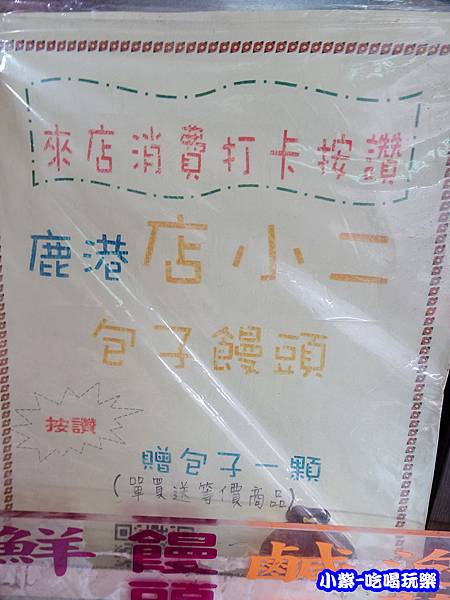 來店消費打卡按讚
鹿港 店小二
包子饅頭
按讚
贈包子一顆
(單買送等價商品)
鮮 饅頭 鹹
小紫-吃喝玩樂